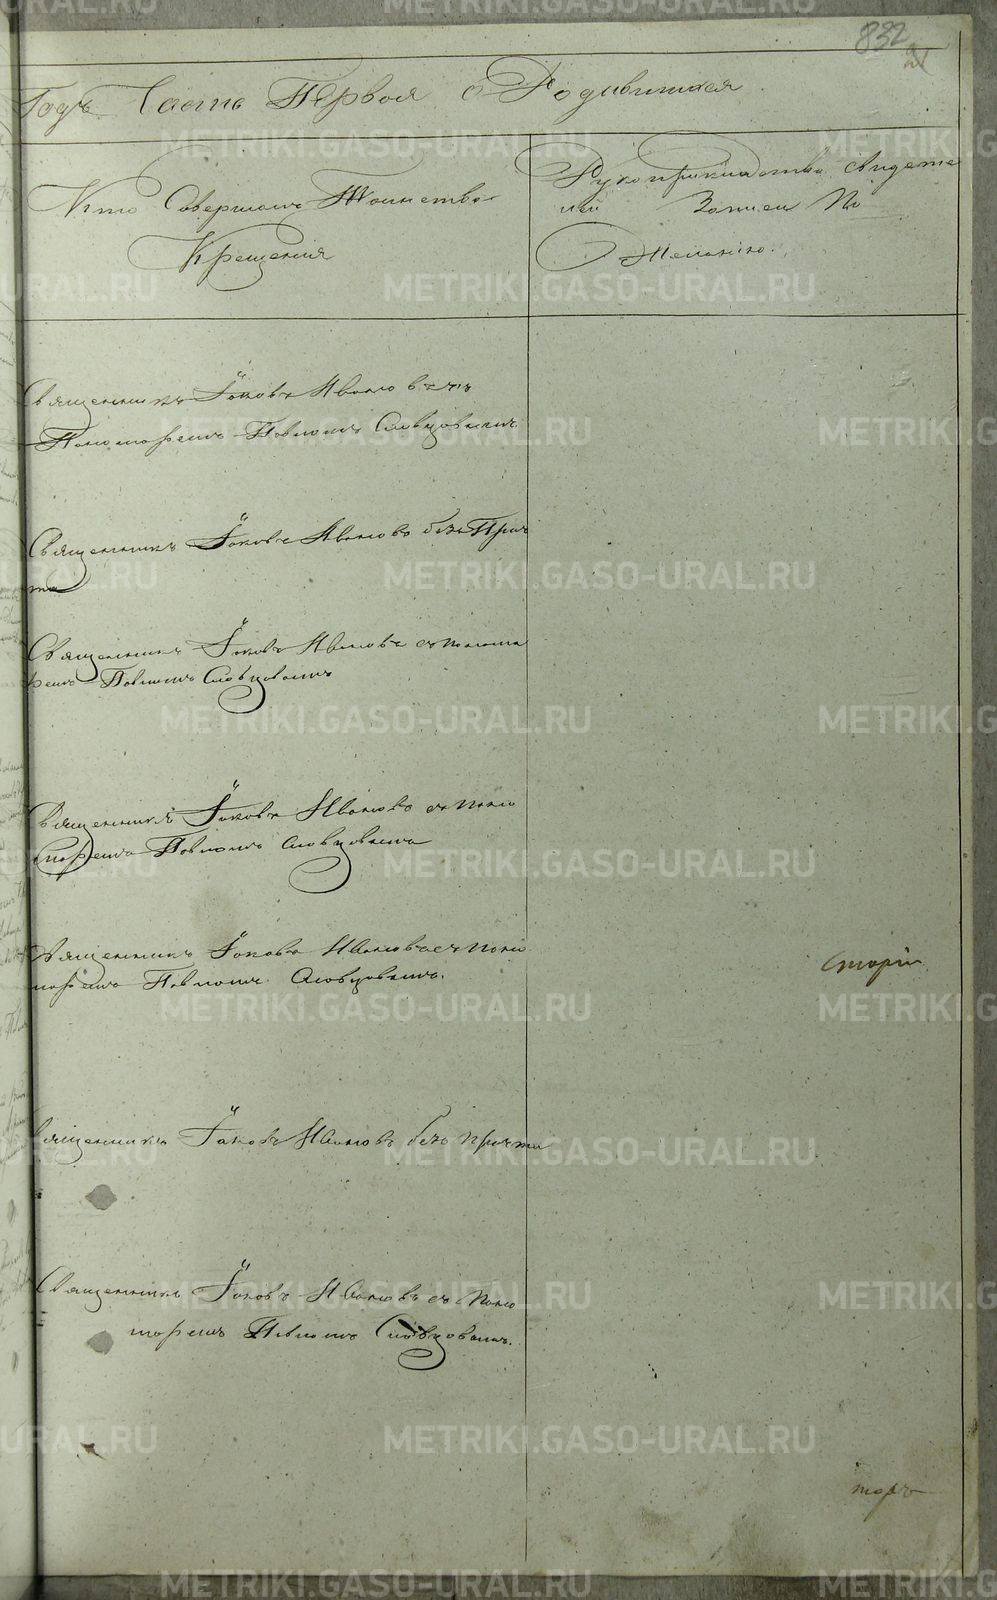 832
21
Годъ Часть Первая о Родившихся
Кто Совершалъ Таинство
Крещения
Рукоприкладство свидете
лей Записи По
Желанию.
Священникъ Іаковъ Ивановъ съ
Пономаремъ Павломъ Словцовымъ
Священникъ Іаковъ Ивановъ безъ Прич
та
Священникъ Іаковъ Ивановъ съ понома
ремъ Павломъ Словцовымъ
Священникъ Іаковъ Ивановъ съ поно
маремъ Павломъ Словцовымъ
Священникъ Іаковъ Ивановъ съ поно
маремъ Павломъ Словцовымъ.
Священникъ Іаковъ Ивановъ безъ причта
Священникъ Іаковъ Ивановъ съ Поно
маремъ Павломъ Словцовымъ.
METRIKI.GASO-URAL.RU